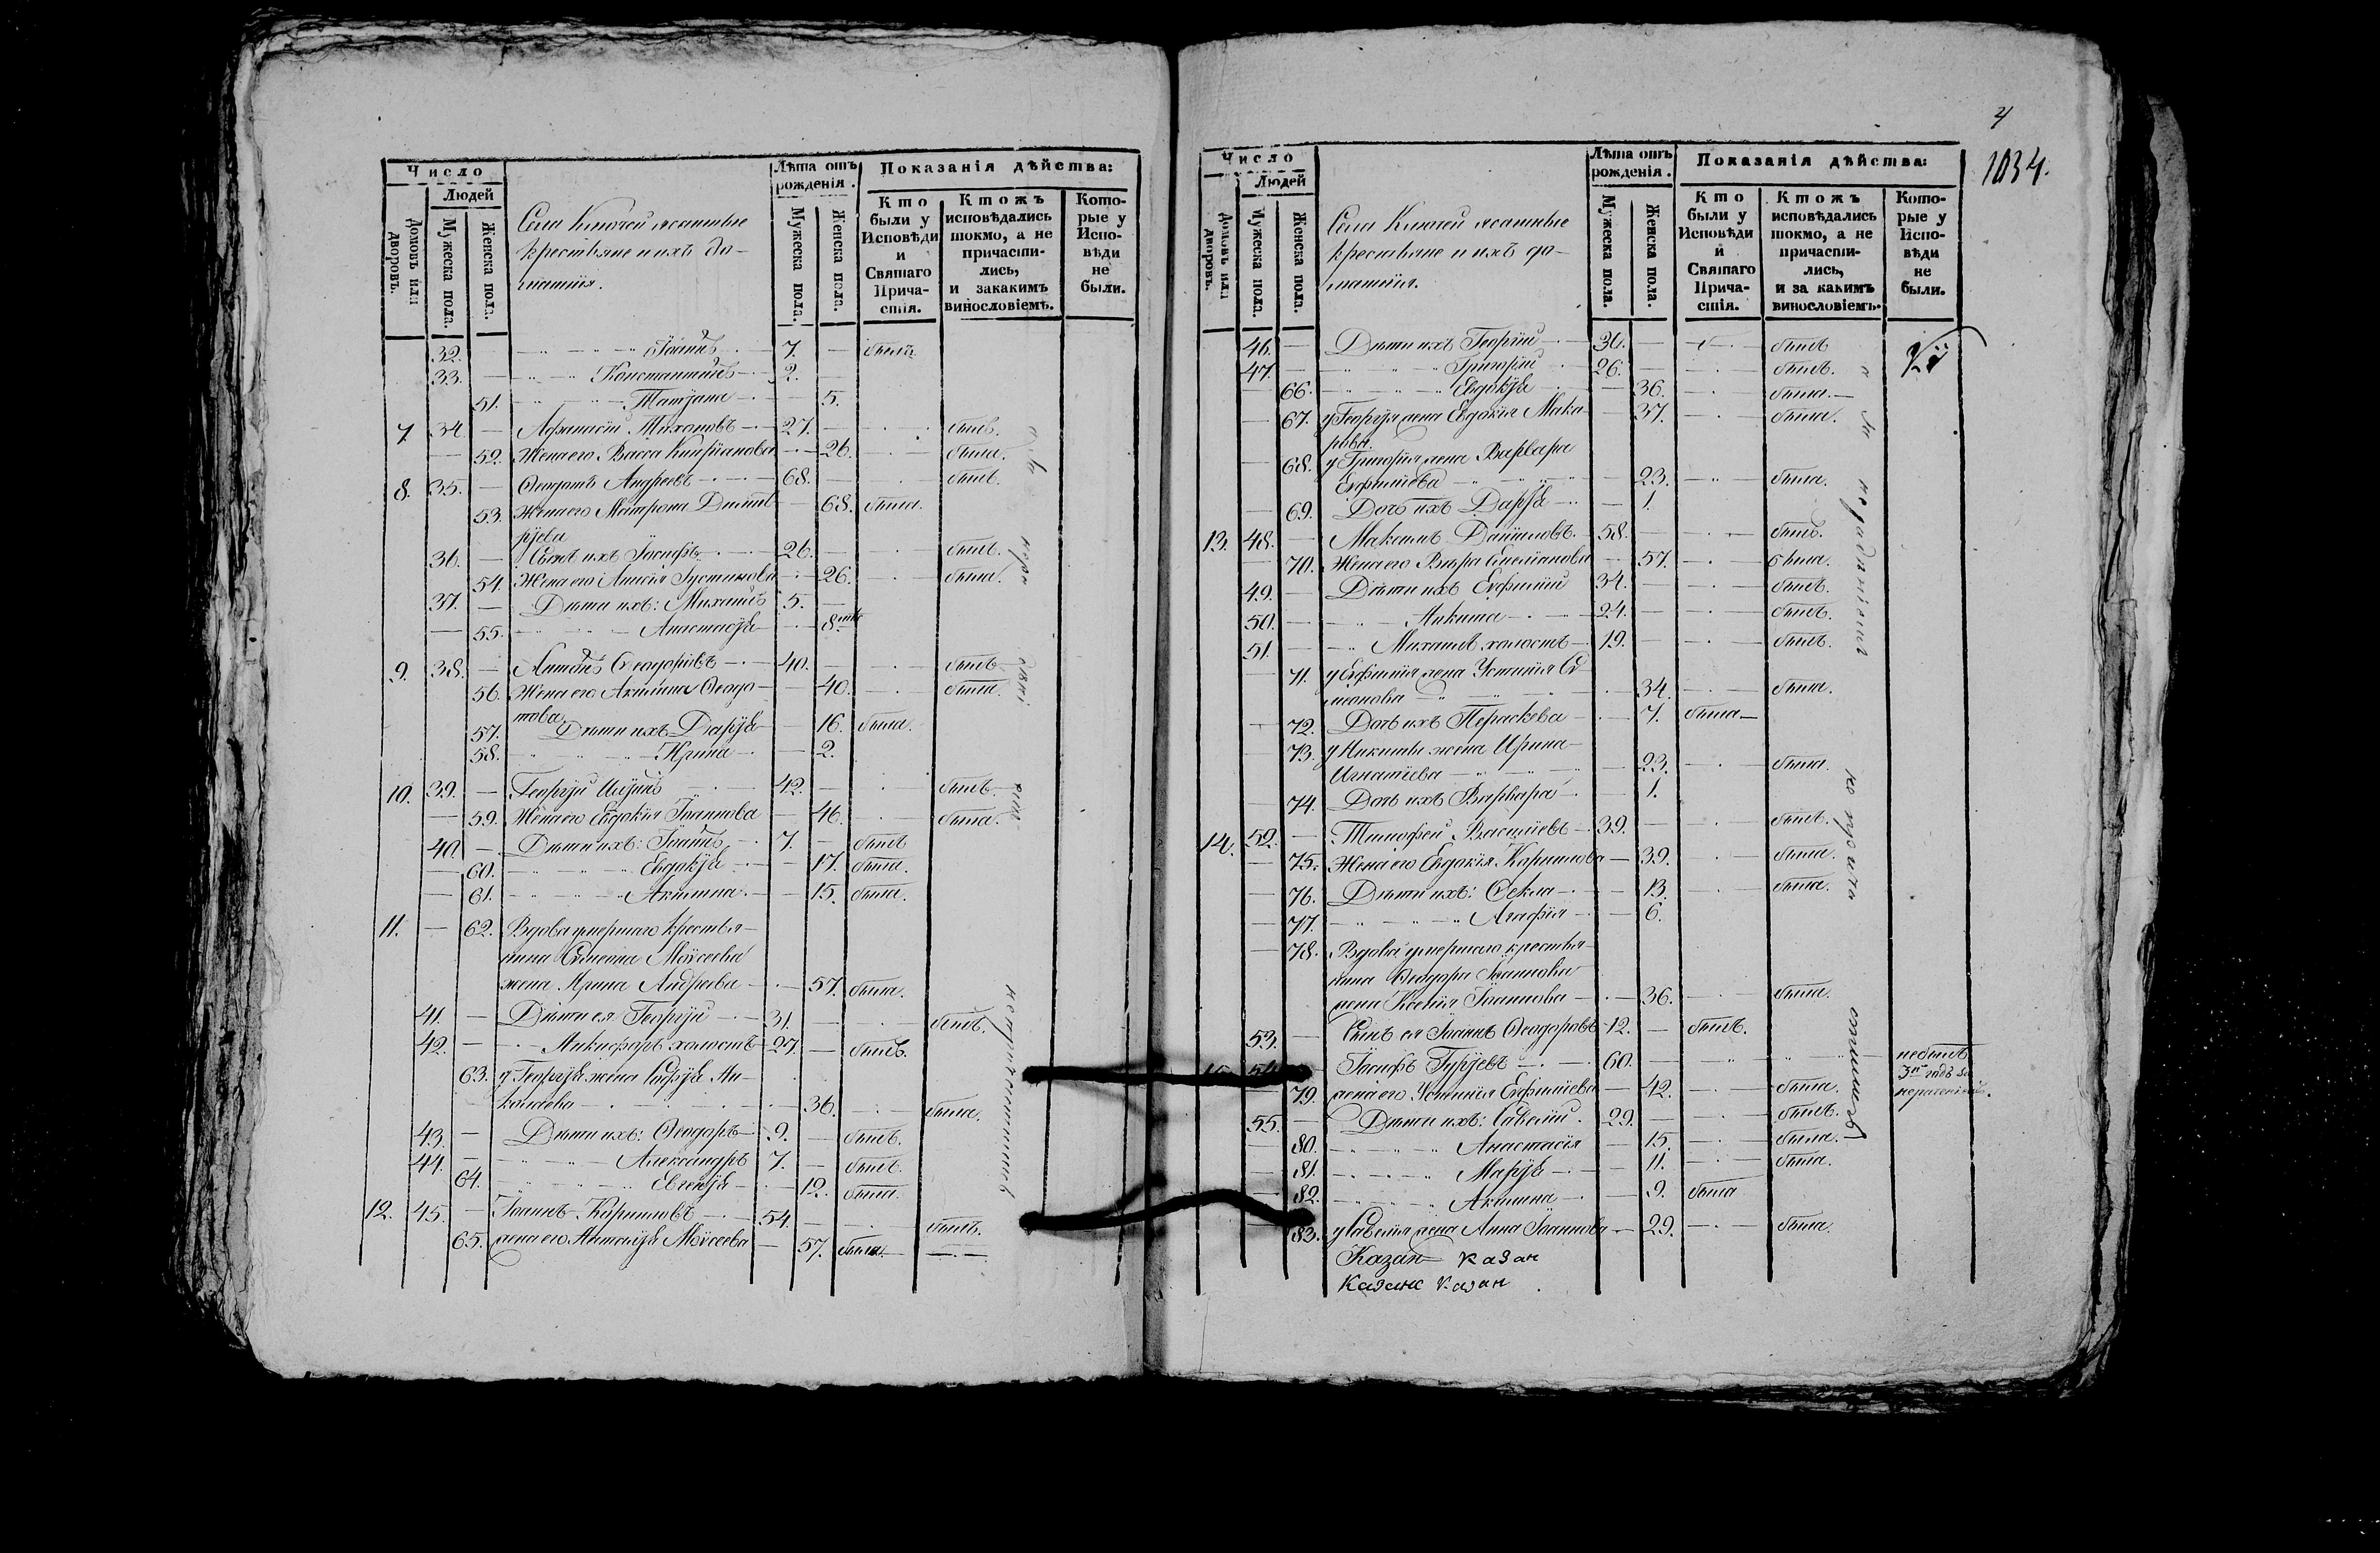 Число
Людей
Домовъ или дворовъ.
Мужеска пола.
Женска пола.
Села Ключей ясашные
крестьяне и ихъ до-
машнія.
Лѣта отъ рожденія.
Мужеска пола.
Женска пола.
Показанія дѣйства:
Кто были у Исповѣди и Святаго Прича-стія.
Ктожъ исповѣдались токмо, а не причасти-лись, и закакимъ винословіемъ.
Кото-рые у Испо-вѣди не были.
32. Іоаннъ 7. былъ
33. Константинъ 2.
51. Татіана 5.
7. 34. Афанасій Тихоновъ 27. былъ.
52. Жена его Васса Кипріанова 26. была.
8. 35. Ѳеодотъ Андреевъ 68. былъ.
53. Жена его Матрона Димит- 68. была.
ріева
36. Сынъ ихъ Іосифъ 26. былъ.
54. Жена его Анисія Іустинова 26. была.
37. Дѣти ихъ: Михаилъ 5.
55. Анастасія 8
9. 38. Антонъ Ѳеодоровъ 40. былъ
56. Жена его Акилина Ѳеодо- 40. была.
това
57. Дѣти ихъ Дарія 16. была.
58. Ирина 2.
10. 39. Георгій 42. былъ.
59. Жена его Евдокія Іоаннова 46. была.
40. Дѣти ихъ: Іоаннъ 7. былъ
60. Евдокія 17. была.
61. Акилина 15. была.
11. 62. Вдова умершаго крестья-
нина Симеона Моисеева
жена Ирина Андреева 57. была.
41. Дѣти ея Георгій 31. былъ.
42. Никифоръ холостъ 27. былъ.
63. у Георгія жена Софія Ни-
колаева 36. была.
43. Дѣти ихъ: Ѳеодоръ 9. былъ.
44. Александръ 7. былъ.
64. Евгенія 12. была.
12. 45. Іоаннъ Кирилловъ 54. былъ.
65. жена его Наталія Моисеева 57. была.
4
1034.
Число
Людей
Домовъ или дворовъ.
Мужеска пола.
Женска пола.
Села Ключей ясашные
крестьяне и ихъ до-
машнія.
Лѣта отъ рожденія.
Мужеска пола.
Женска пола.
Показанія дѣйства:
Кто были у Исповѣди и Святаго Прича-стія.
Ктожъ исповѣдались токмо, а не причасти-лись, и за какимъ винословіемъ.
Кото-рые у Испо-вѣди не были.
46. Дѣти ихъ Георгій 36. былъ
47. Григорій 26. былъ.
66. Евдокія 36. была.
67. у Георгія жена Евдокія Мака- 37. была.
рова
68. у Григорія жена Варвара
Евфиміева 23. была.
69. Дочь ихъ Дарія 1.
13. 48. Максимъ Даниловъ 58. былъ.
70. Жена его Вѣра Емеліанова 57. была.
49. Дѣти ихъ Евфимій 34. былъ.
50. Никита 24. былъ.
51. Михаилъ холостъ 19. былъ.
71. у Евфимія жена Устинія Си-
меонова 34. была.
72. Дочь ихъ Параскева 7. была
73. у Никиты жена Ирина
Игнатіева 23. была.
74. Дочь ихъ Варвара 1.
14. 52. Тимофей Васильевъ 39. былъ.
75. Жена его Евдокія Кириллова 39. была.
76. Дѣти ихъ: Ѳекла 13. была.
77. Агафія 6.
78. Вдова умершаго крестья-
нина Ѳеодора Іоаннова
жена Ксенія Іоаннова 36. была.
53. Сынъ ея Іоаннъ Ѳеодоровъ 12. былъ.
15. 54. Іосифъ Гурьевъ 60. небылъ 3й годъ за нераченіемъ.
79. жена его Устинія Евфиміева 42. была.
55. Дѣти ихъ: Савелій 29. былъ.
80. Анастасія 15. была.
81. Марія 11. была.
82. Акилина 9. была
83. у Савелія жена Анна Іоаннова 29. была.
Казан казан
Казане казан